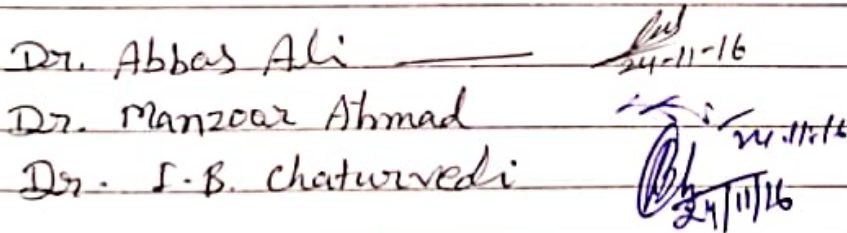 Dr. Abbas Ali 24-11-16
Dr. Manzoar Ahmad 24.11.16
Dr. S.B. Chaturvedi 24/11/16